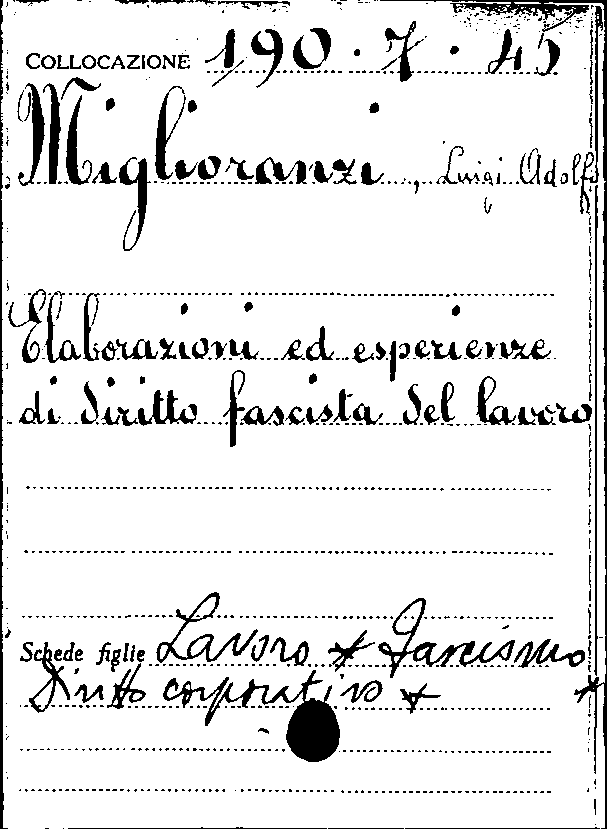 COLLOCAZIONE 190 . 7 . 45
Miglioranzi, Luigi Adolfo
Elaborazioni ed esperienze
di diritto fascista del lavoro
Schede figlie Lavoro * Fascismo
Diritto corporativo * *